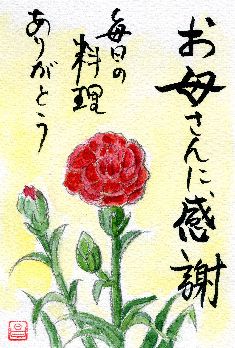 お母さんに、感謝
毎日の
料理
ありがとう